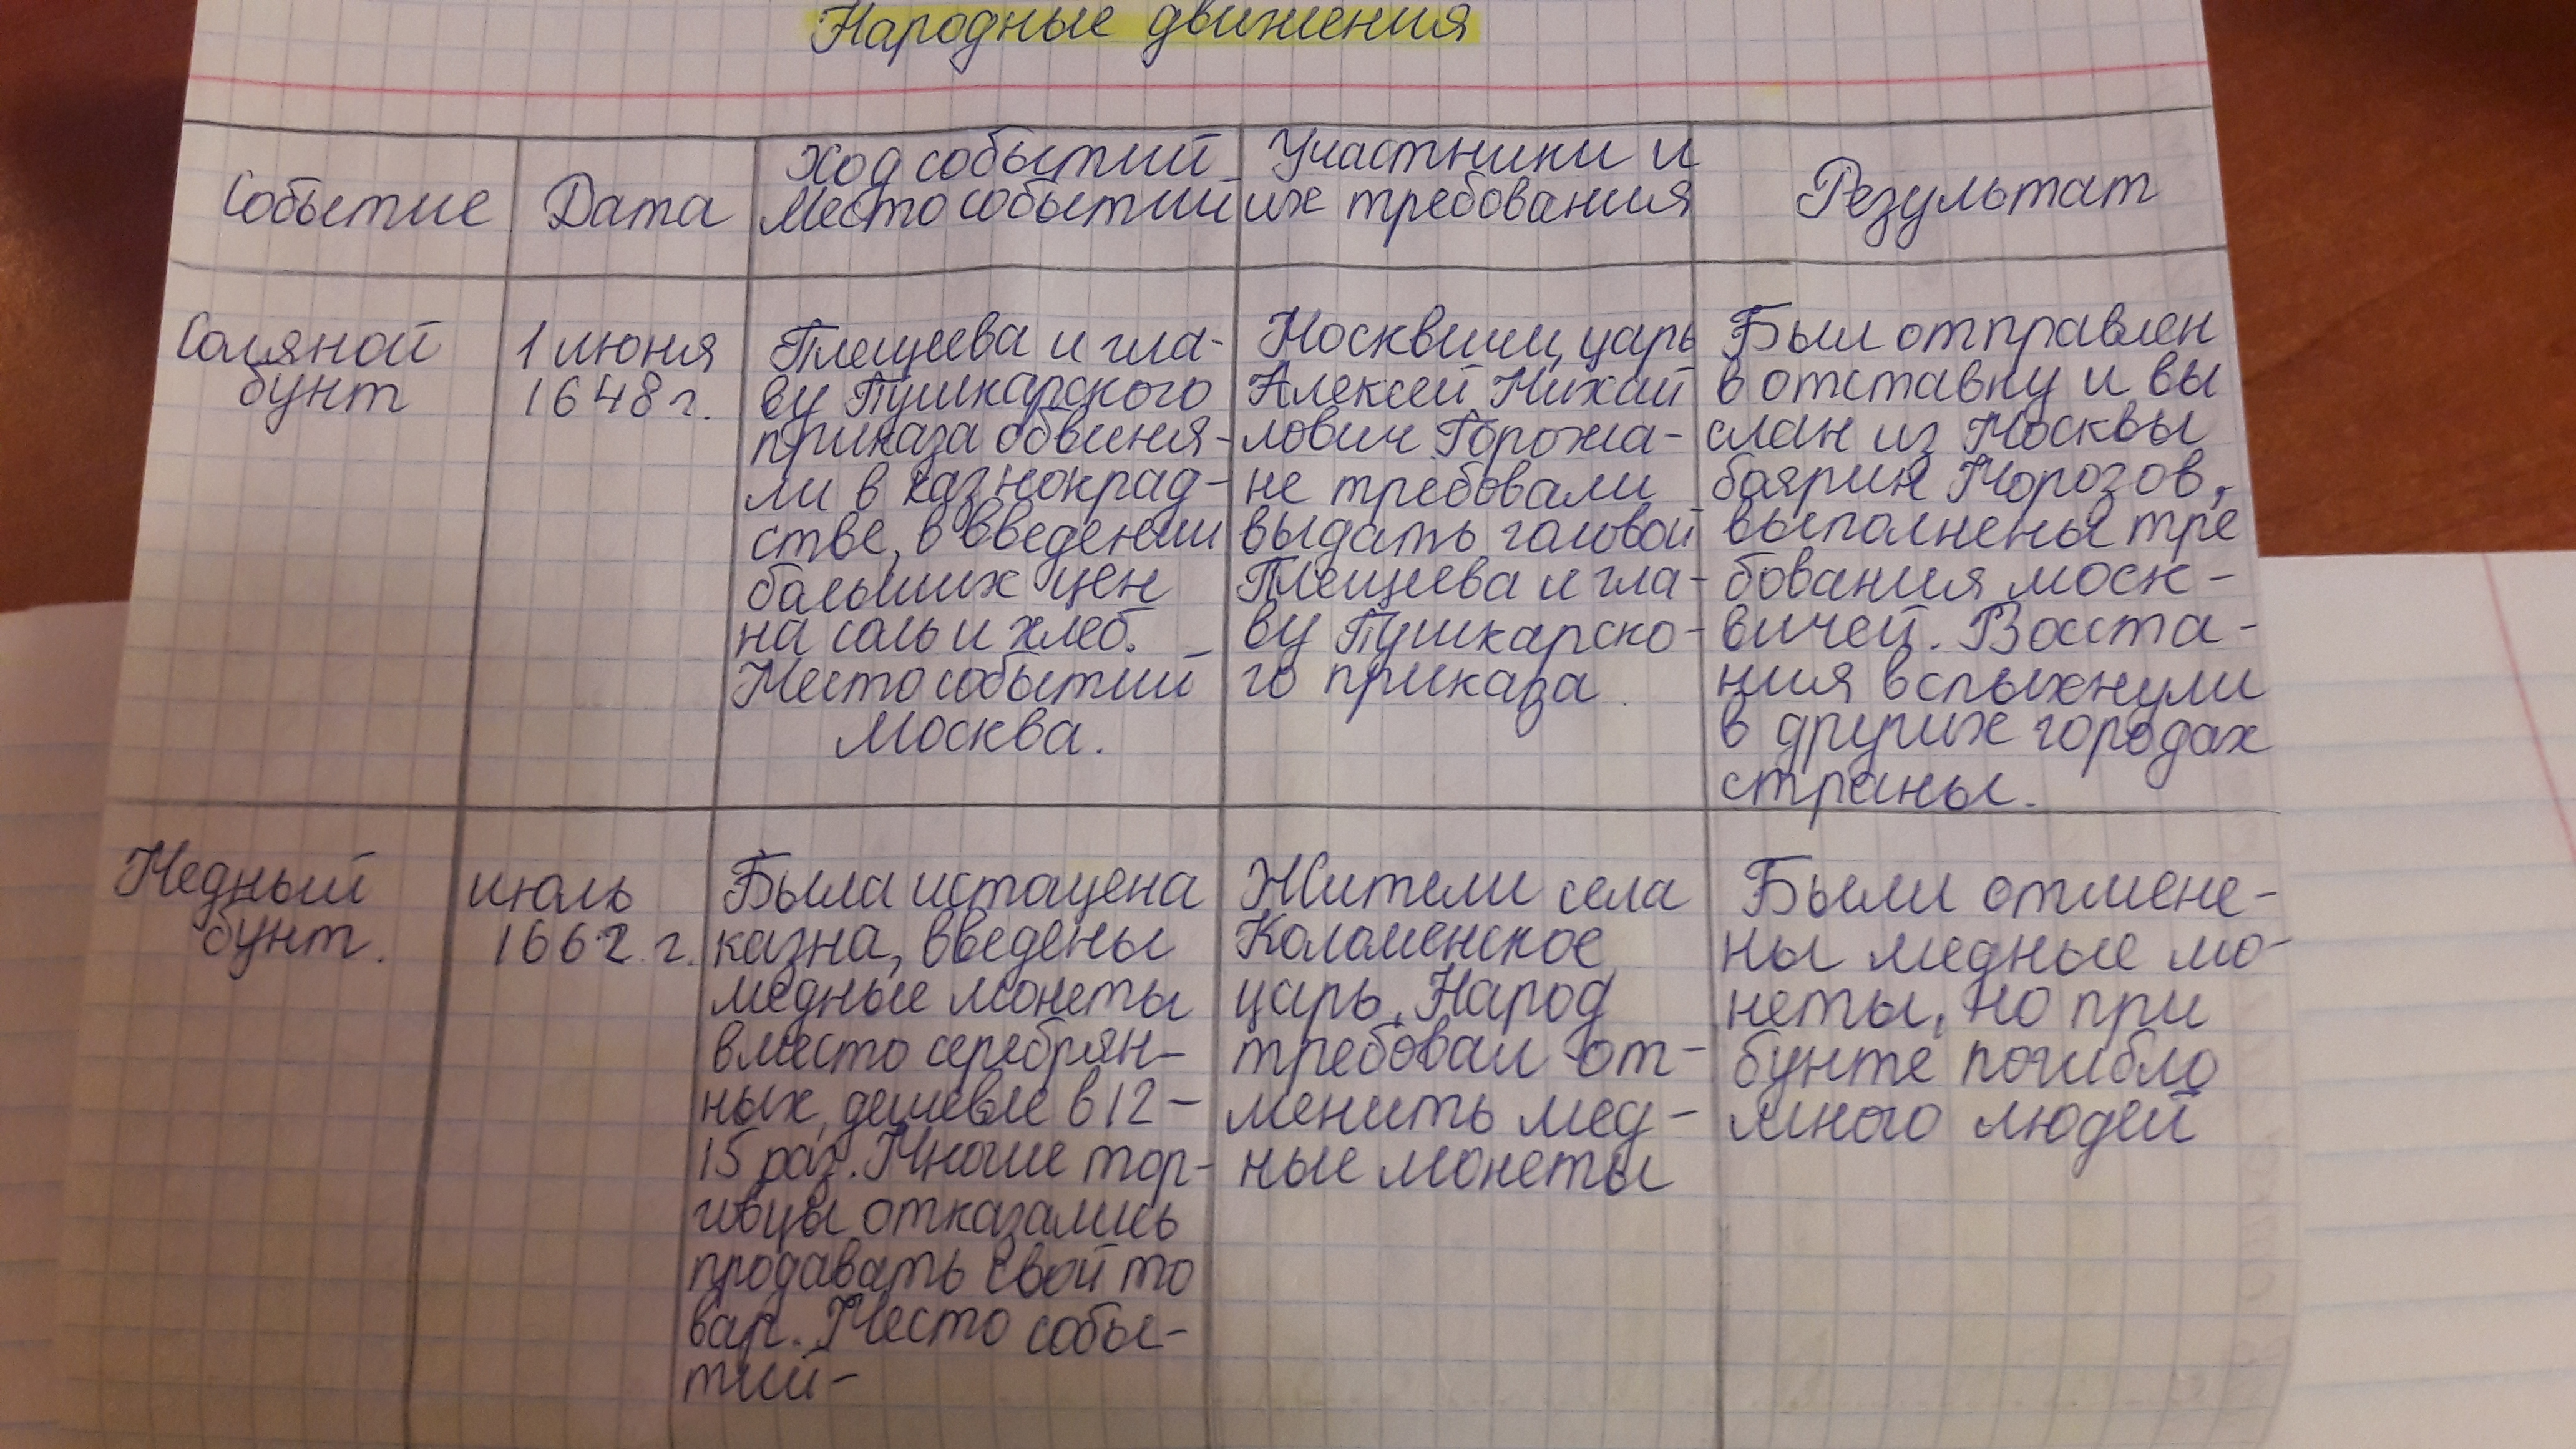 Народные движения
Событие
Дата
Ход событий
Место событий
Участники и
их требования
Результат
Соляной
бунт
1 июня
1648 г.
Плещеева и гла-
ву Пушкарского
приказа обвиня-
ли в казнокрад-
стве, в введении
больших цен
на соль и хлеб.
Место событий -
Москва.
Москвичи, царь
Алексей Михай
лович Горожа-
не требовали
выдать головой
Плещеева и гла-
ву Пушкарско-
го приказа
Был отправлен
в отставку и вы
слан из Москвы
боярин Морозов,
выполнены тре
бования моск-
вичей. Восста-
ния вспыхнули
в других городах
страны.
Медный
бунт.
июль
1662 г.
Была истощена
казна, введены
медные монеты
вместо серебрян-
ных, дешевле в 12-
15 раз. Многие тор-
говцы отказались
продавать свой то
вар. Место собы-
тий-
Жители села
Коломенское,
царь. Народ
требовал от-
менить мед-
ные монеты
Были отмене-
ны медные мо-
неты, но при
бунте погибло
много людей